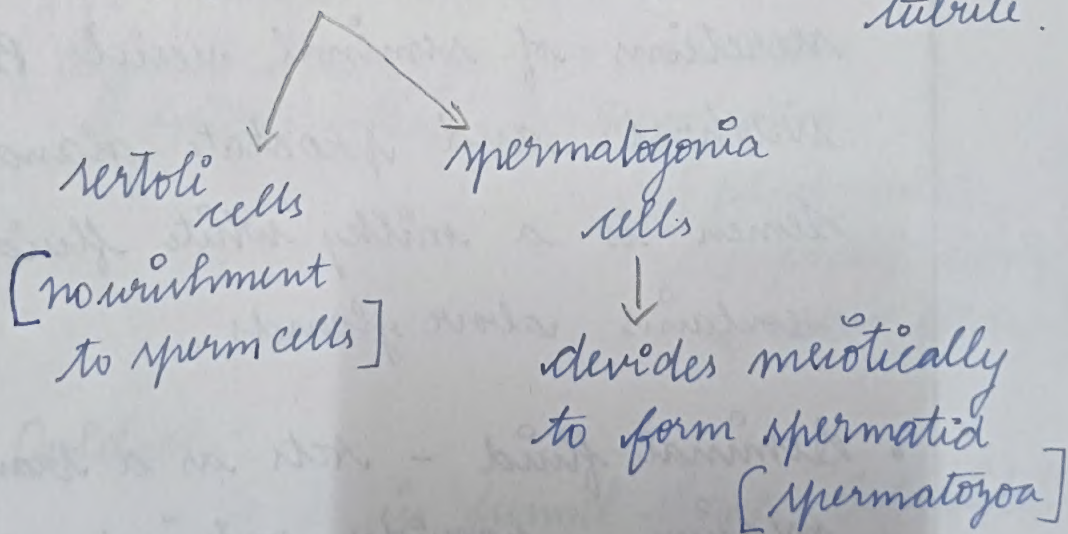 tubule.
sertoli
cells
[nourishment
to sperm cells]
spermatogonia
cells
devides meiotically
to form spermatid
[spermatozoa]